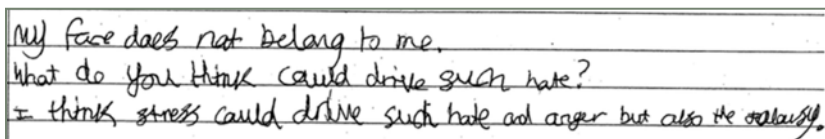 My face does not belong to me.
What do you think could drive such hate?
I think stress could drive such hate and anger but also the